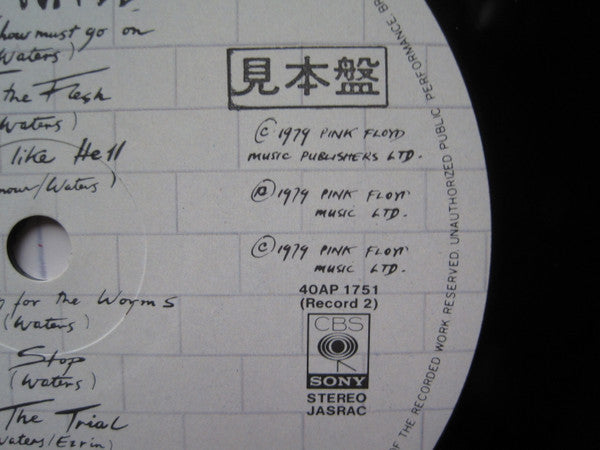 how must go on
Waters)
the Flesh
Waters)
like Hell
mour/Waters)
for the Worms
(Waters)
Stop
(Waters)
The Trial
Waters/Ezrin)
見本盤
© 1979 PINK FLOYD
MUSIC PUBLISHERS LTD.
℗ 1979 PINK FLOYD
MUSIC LTD.
© 1979 PINK FLOYD
MUSIC LTD.
40AP 1751
(Record 2)
CBS
SONY
STEREO
JASRAC
OF THE RECORDED WORK RESERVED. UNAUTHORIZED PUBLIC PERFORMANCE BR